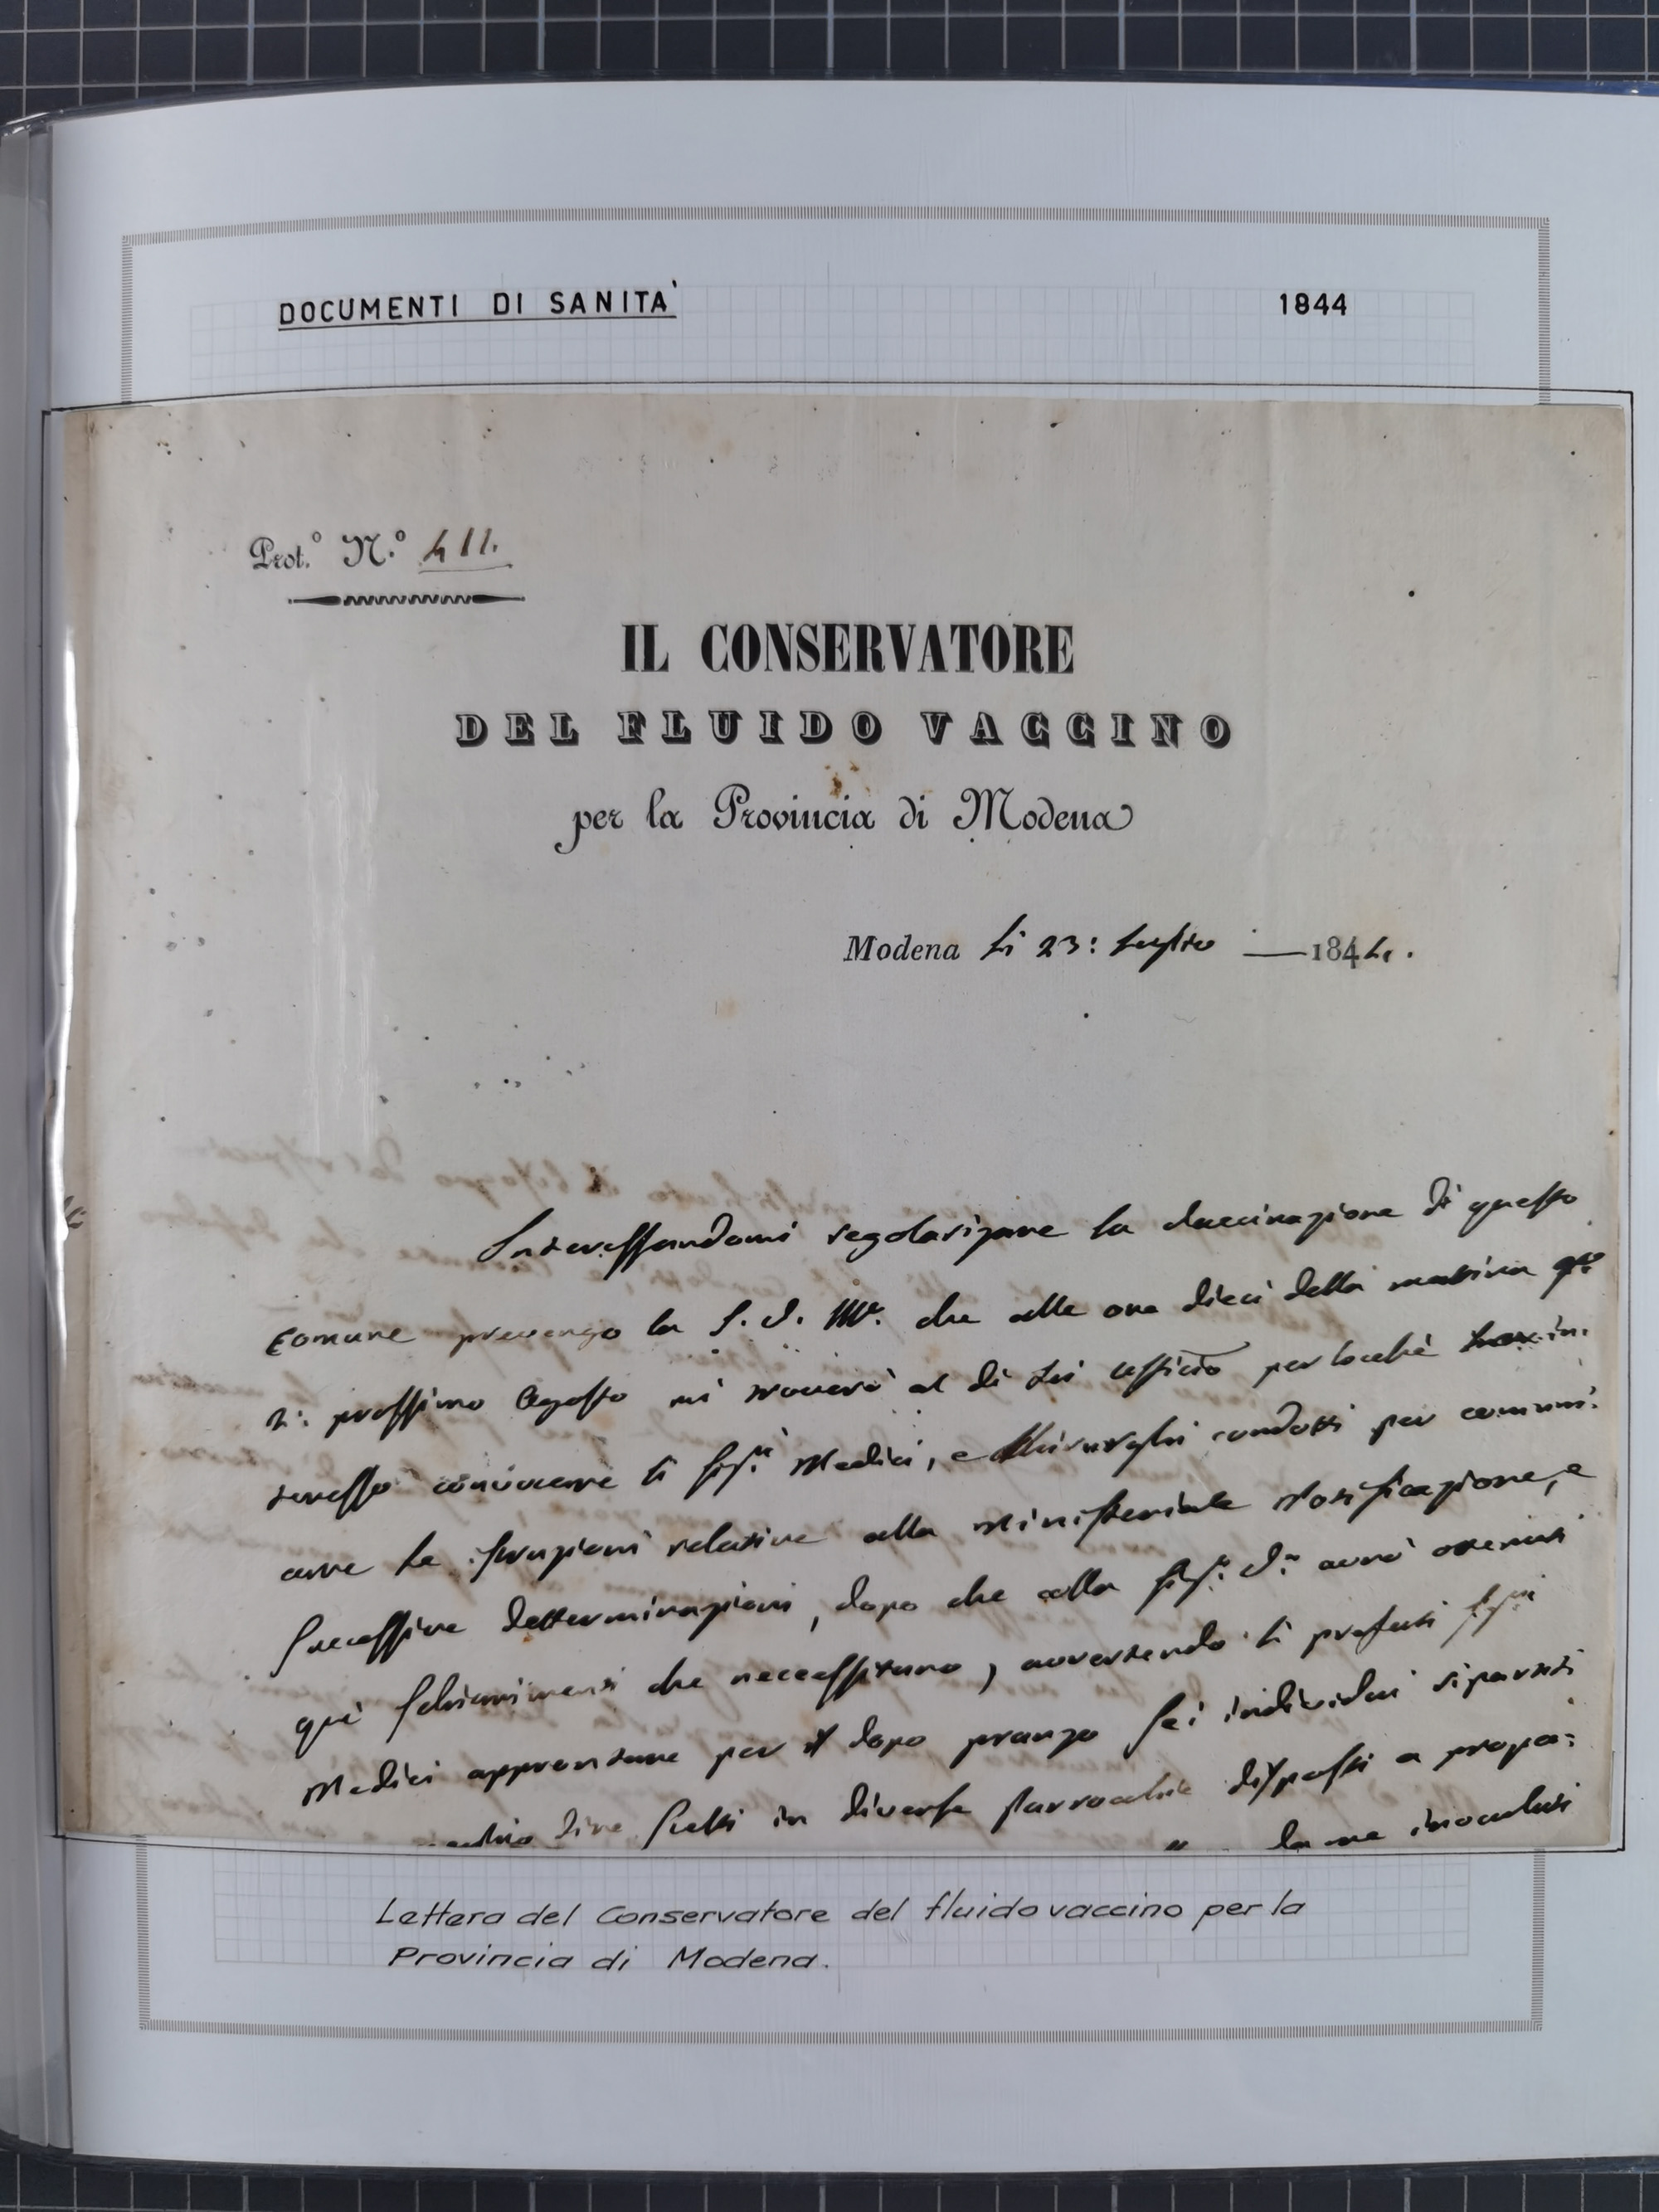 DOCUMENTI DI SANITA'
1844
Prot.º N.º 411.
IL CONSERVATORE
DEL FLUIDO VACCINO
per la Provincia di Modena
Modena li 23: Luglio — 1844.
Interessandomi regolarizzare la Vaccinazione di questo
Comune prevengo la S. V. Ill. che alle ore dieci della mattina
2: prossimo Agosto mi troverò al di Lei Ufficio perlocchè in:
teresso convocare li Sigri Medici, e Chirurghi condotti per comuni:
care le istruzioni relative alla Ministeriale Notificazione, e
successive determinazioni, dopo che alla Sigª Vª avrò ottenuti
que' schiarimenti che necessitano, avvertendo li prefati Sigri
Medici approntare per il dopo pranzo sei individui ripartiti
scelti in diverse Parrocchie disposti a propa:
inoculati
Lettera del Conservatore del fluido vaccino per la
Provincia di Modena.